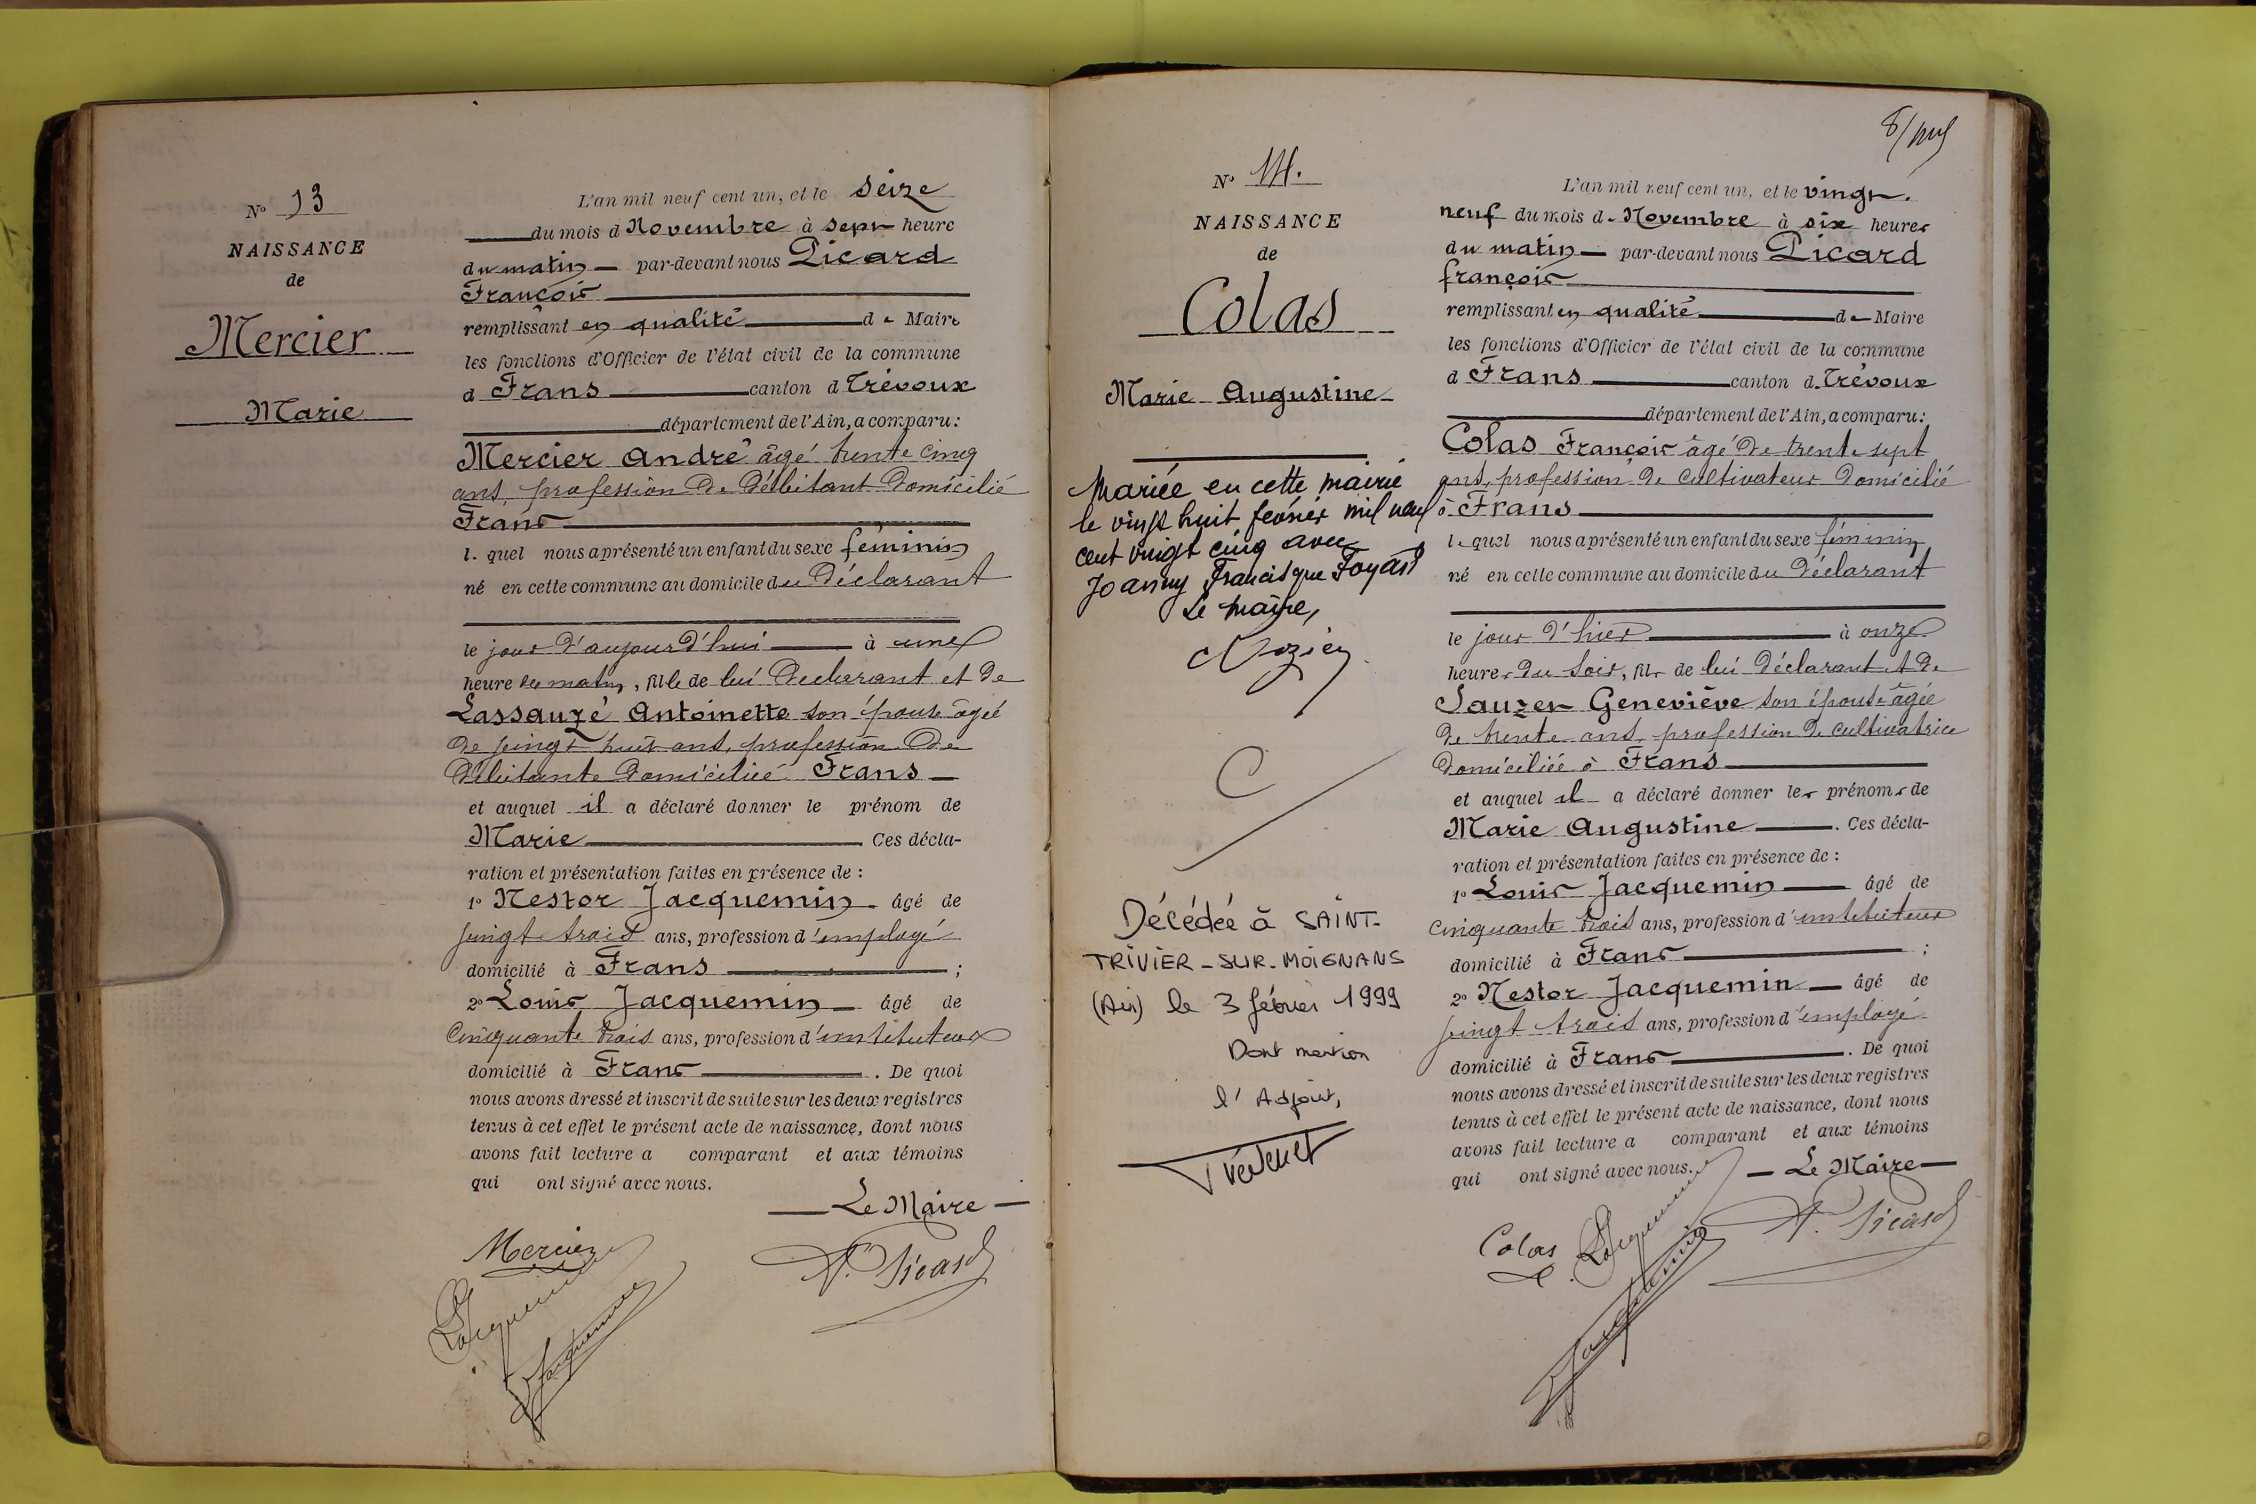 N° 13
NAISSANCE
de
Mercier
Marie
L'an mil neuf cent un, et le seize
du mois d Novembre à sept heure
du matin par-devant nous Picard
François
remplissant en qualité de Maire
les fonctions d'Officier de l'état civil de la commune
d Frans canton d Trévoux
département de l'Ain, a comparu :
Mercier André âgé trente cinq
ans, profession de Débitant domicilié
Frans
lequel nous a présenté un enfant du sexe féminin
né en cette commune au domicile du Déclarant
le jour d'aujourd'hui à une
heure du matin, fille de lui Déclarant et de
Lassauzé Antoinette son épouse âgée
de vingt huit ans, profession de
Débitante domiciliée Frans
et auquel il a déclaré donner le prénom de
Marie Ces décla-
ration et présentation faites en présence de :
1° Nestor Jacquemin âgé de
vingt trois ans, profession d'employé
domicilié à Frans ;
2° Louis Jacquemin âgé de
Cinquante trois ans, profession d'instituteur
domicilié à Frans . De quoi
nous avons dressé et inscrit de suite sur les deux registres
tenus à cet effet le présent acte de naissance, dont nous
avons fait lecture a comparant et aux témoins
qui ont signé avec nous.
Le Maire
Mercier
Jacquemin
Jacquemin
F. Picard
8/
N° 14.
NAISSANCE
de
Colas
Marie Augustine
Mariée en cette mairie
le vingt huit février mil neuf
cent vingt cinq avec
Joanny Francisque Foyard
Le Maire,
C
Décédée à SAINT-
TRIVIER-SUR-MOIGNANS
(Ain) le 3 février 1999
Dont mention
l'Adjoint,
L'an mil neuf cent un, et le vingt
neuf du mois de Novembre à six heures
du matin par-devant nous Picard
françois
remplissant en qualité de Maire
les fonctions d'Officier de l'état civil de la commune
d Frans canton d. Trévoux
département de l'Ain, a comparu :
Colas François âgé de trente sept
ans, profession de Cultivateur domicilié
à Frans
lequel nous a présenté un enfant du sexe féminin
né en cette commune au domicile du Déclarant
le jour d'hier à onze
heures du soir, fille de lui Déclarant et de
Sauzet Geneviève son épouse âgée
de trente ans, profession de Cultivatrice
domiciliée à Frans
et auquel il a déclaré donner les prénoms de
Marie Augustine . Ces décla-
ration et présentation faites en présence de :
1° Louis Jacquemin âgé de
Cinquante trois ans, profession d'instituteur
domicilié à Frans ;
2° Nestor Jacquemin âgé de
vingt trois ans, profession d'employé
domicilié à Frans . De quoi
nous avons dressé et inscrit de suite sur les deux registres
tenus à cet effet le présent acte de naissance, dont nous
avons fait lecture a comparant et aux témoins
qui ont signé avec nous.
Le Maire
Colas
Jacquemin
Jacquemin
F. Picard